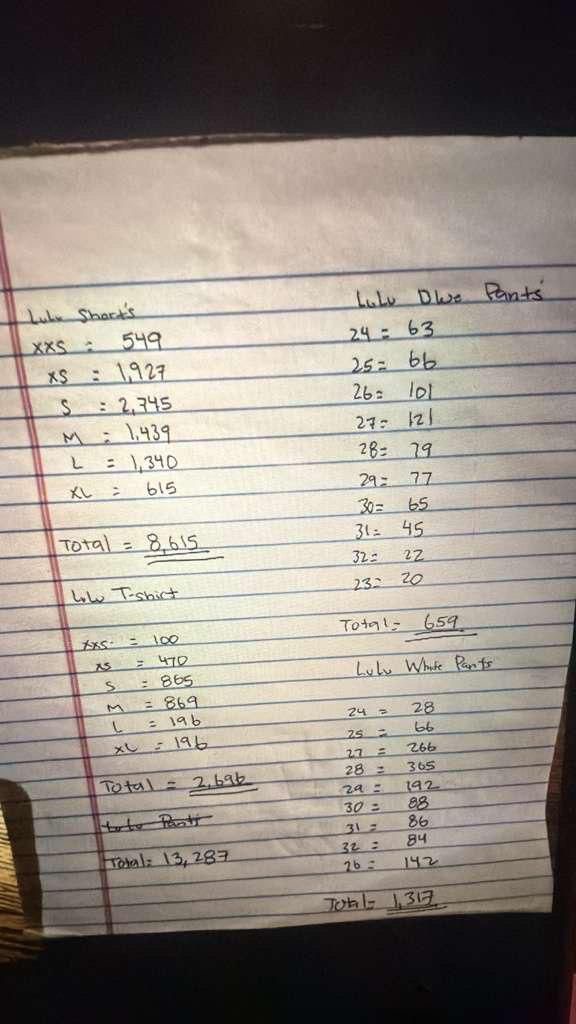 Lulu Short's
XXS = 549
XS = 1,927
S = 2,745
M = 1,439
L = 1,340
XL = 615
Total = 8,615
Lulu T-shirt
XXS = 100
XS = 470
S = 865
M = 869
L = 196
XL = 196
Total = 2,696
Lulu Pants
Total = 13,287
Lulu Blue Pants
24 = 63
25 = 66
26 = 101
27 = 121
28 = 79
29 = 77
30 = 65
31 = 45
32 = 22
23 = 20
Total = 659
Lulu White Pants
24 = 28
25 = 66
27 = 266
28 = 365
29 = 192
30 = 88
31 = 86
32 = 84
26 = 142
Total = 1,317